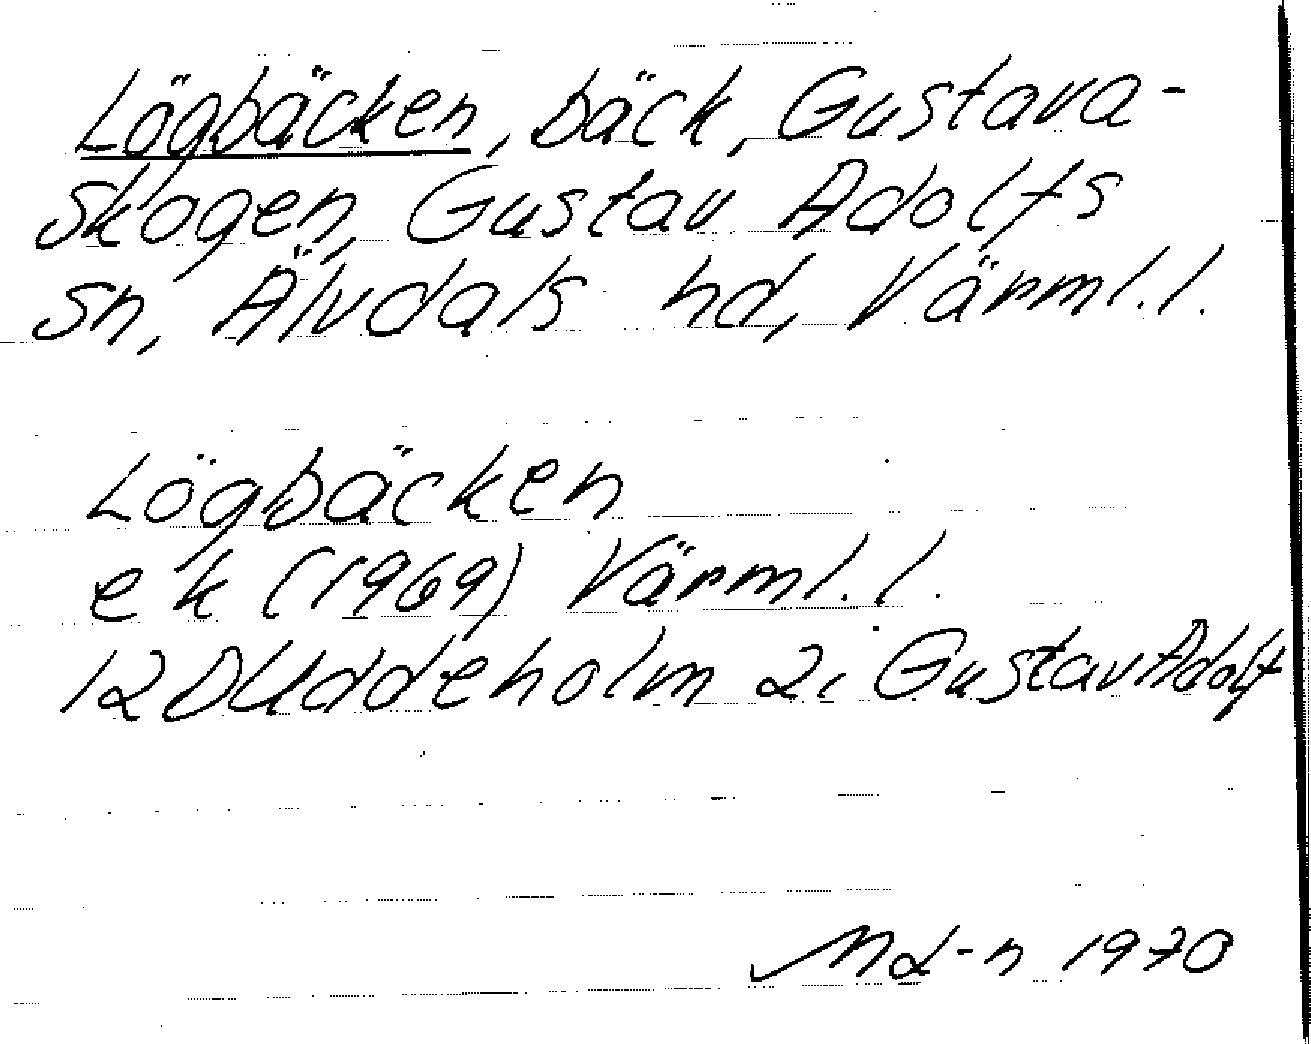 Lögbäcken, bäck, Gustava-
skogen, Gustav Adolfs
sn, Älvdals hd, Värml.l.
Lögbäcken
ek (1969) Värml.l.
12 D Uddeholm 2i Gustav Adolf
1970